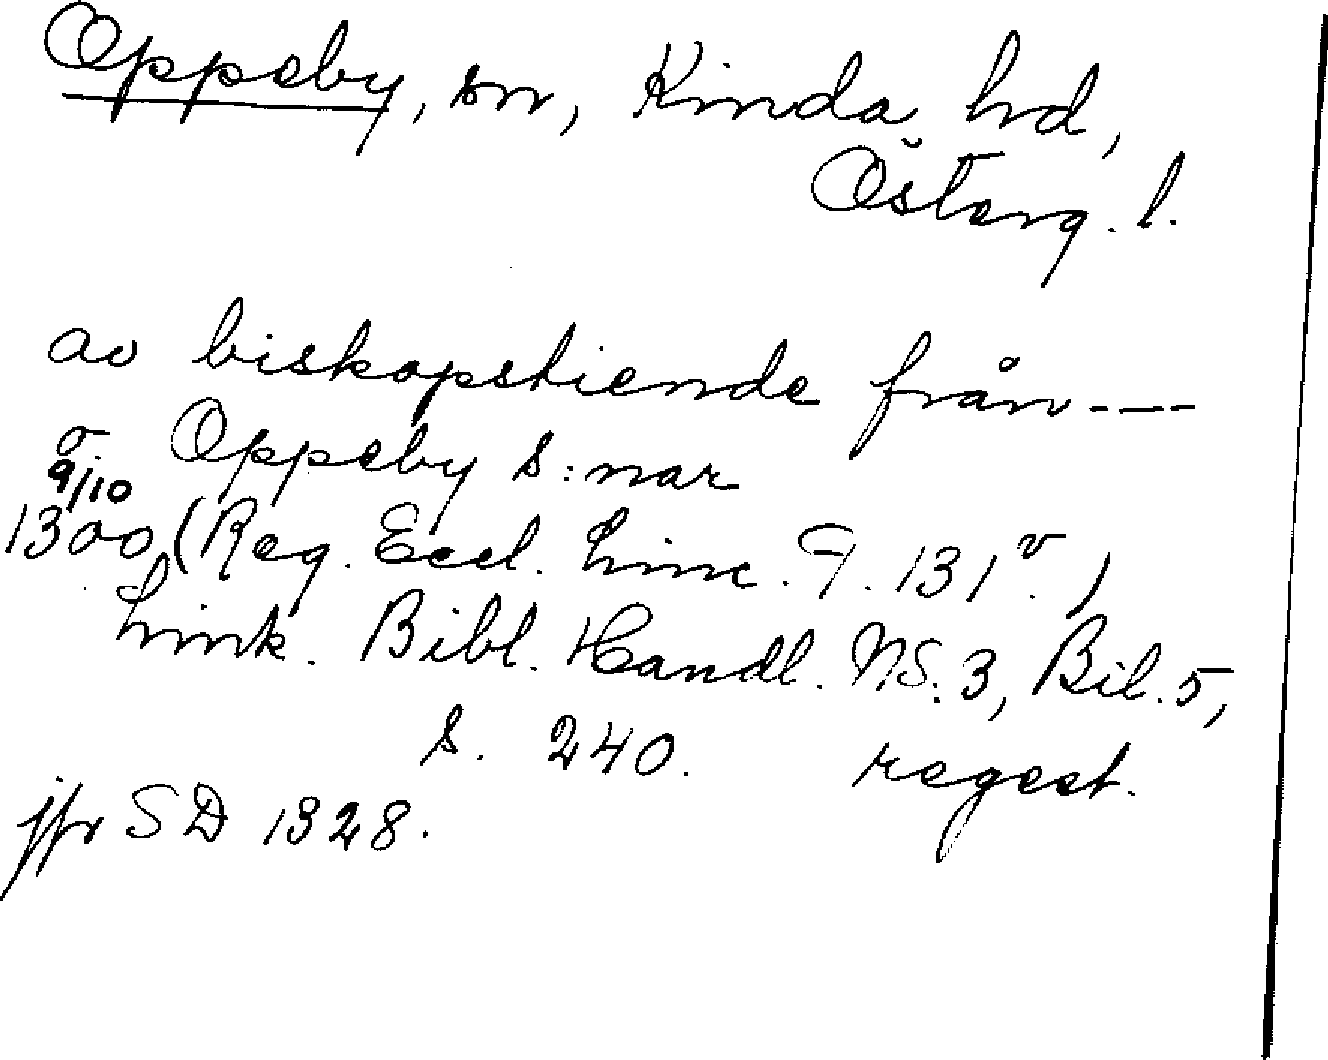 Oppeby, sn, Kinda hd,
Österg. l.
av biskopstiende från ---
Oppeby s:nar
9/10
1300 (Reg. Eccl. Linc. F. 131v.)
Link. Bibl. Handl. NS. 3, Bil. 5,
s. 240. regest.
jfr SD 1328.